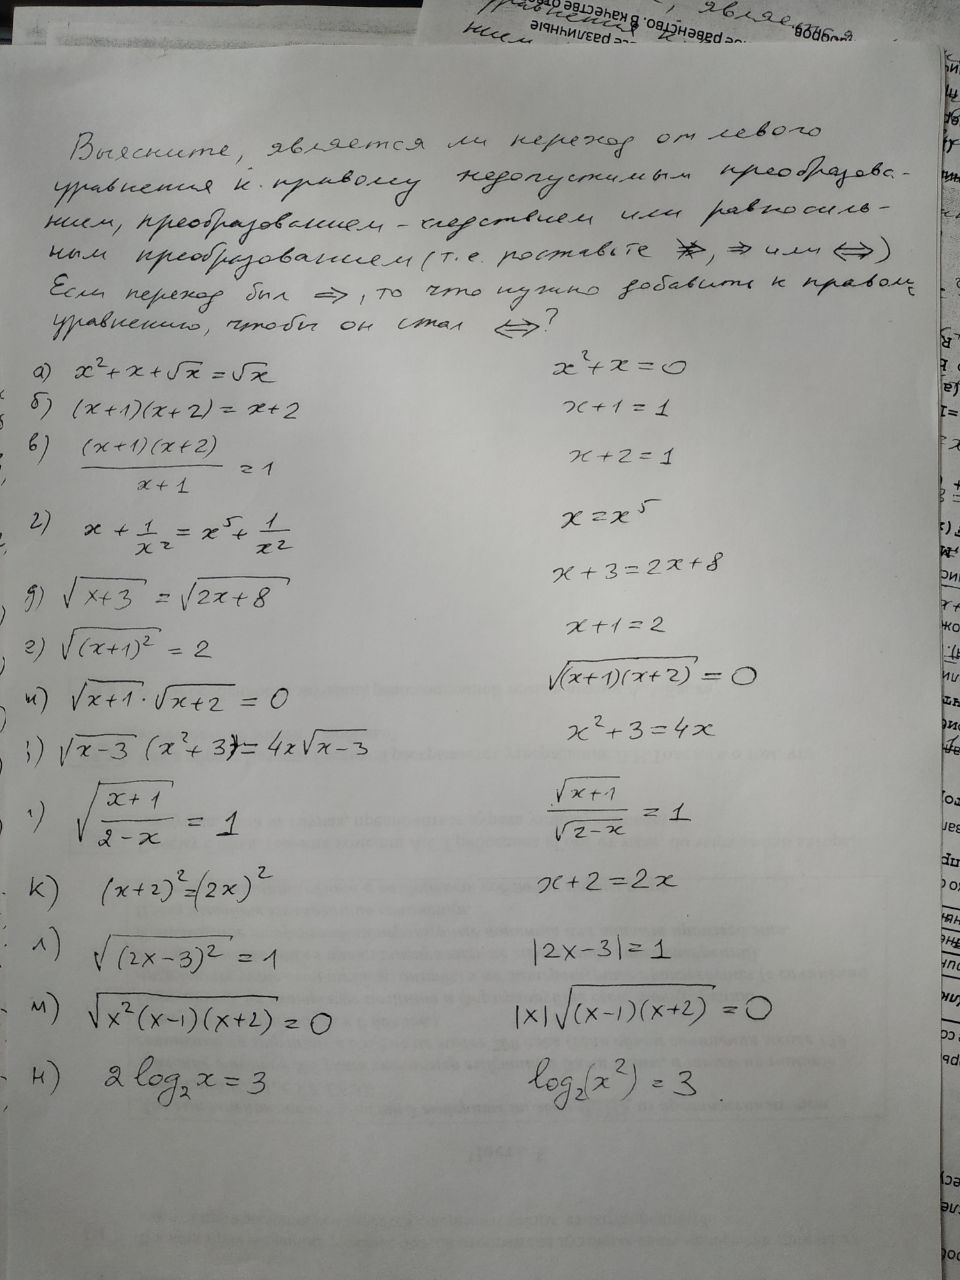 Выясните, является ли переход от левого
уравнения к правому недопустимым преобразова-
нием, преобразованием-следствием или равносиль-
ным преобразованием (т.е. поставьте ⇏, ⇒ или ⇔)
Если переход был ⇒, то что нужно добавить к правому
уравнению, чтобы он стал ⇔?
а) x²+x+√x=√x x²+x=0
б) (x+1)(x+2)=x+2 x+1=1
в) (x+1)(x+2)/(x+1) =1 x+2=1
г) x+1/x²=x⁵+1/x² x=x⁵
д) √(x+3)=√(2x+8) x+3=2x+8
√((x+1)²)=2 x+1=2
√(x+1)·√(x+2)=0 √((x+1)(x+2))=0
√(x-3)(x²+3)=4x√(x-3) x²+3=4x
√((x+1)/(2-x))=1 √(x+1)/√(2-x)=1
к) (x+2)²=(2x)² x+2=2x
л) √((2x-3)²)=1 |2x-3|=1
м) √(x²(x-1)(x+2))=0 |x|√((x-1)(x+2))=0
н) 2log₂x=3 log₂(x²)=3